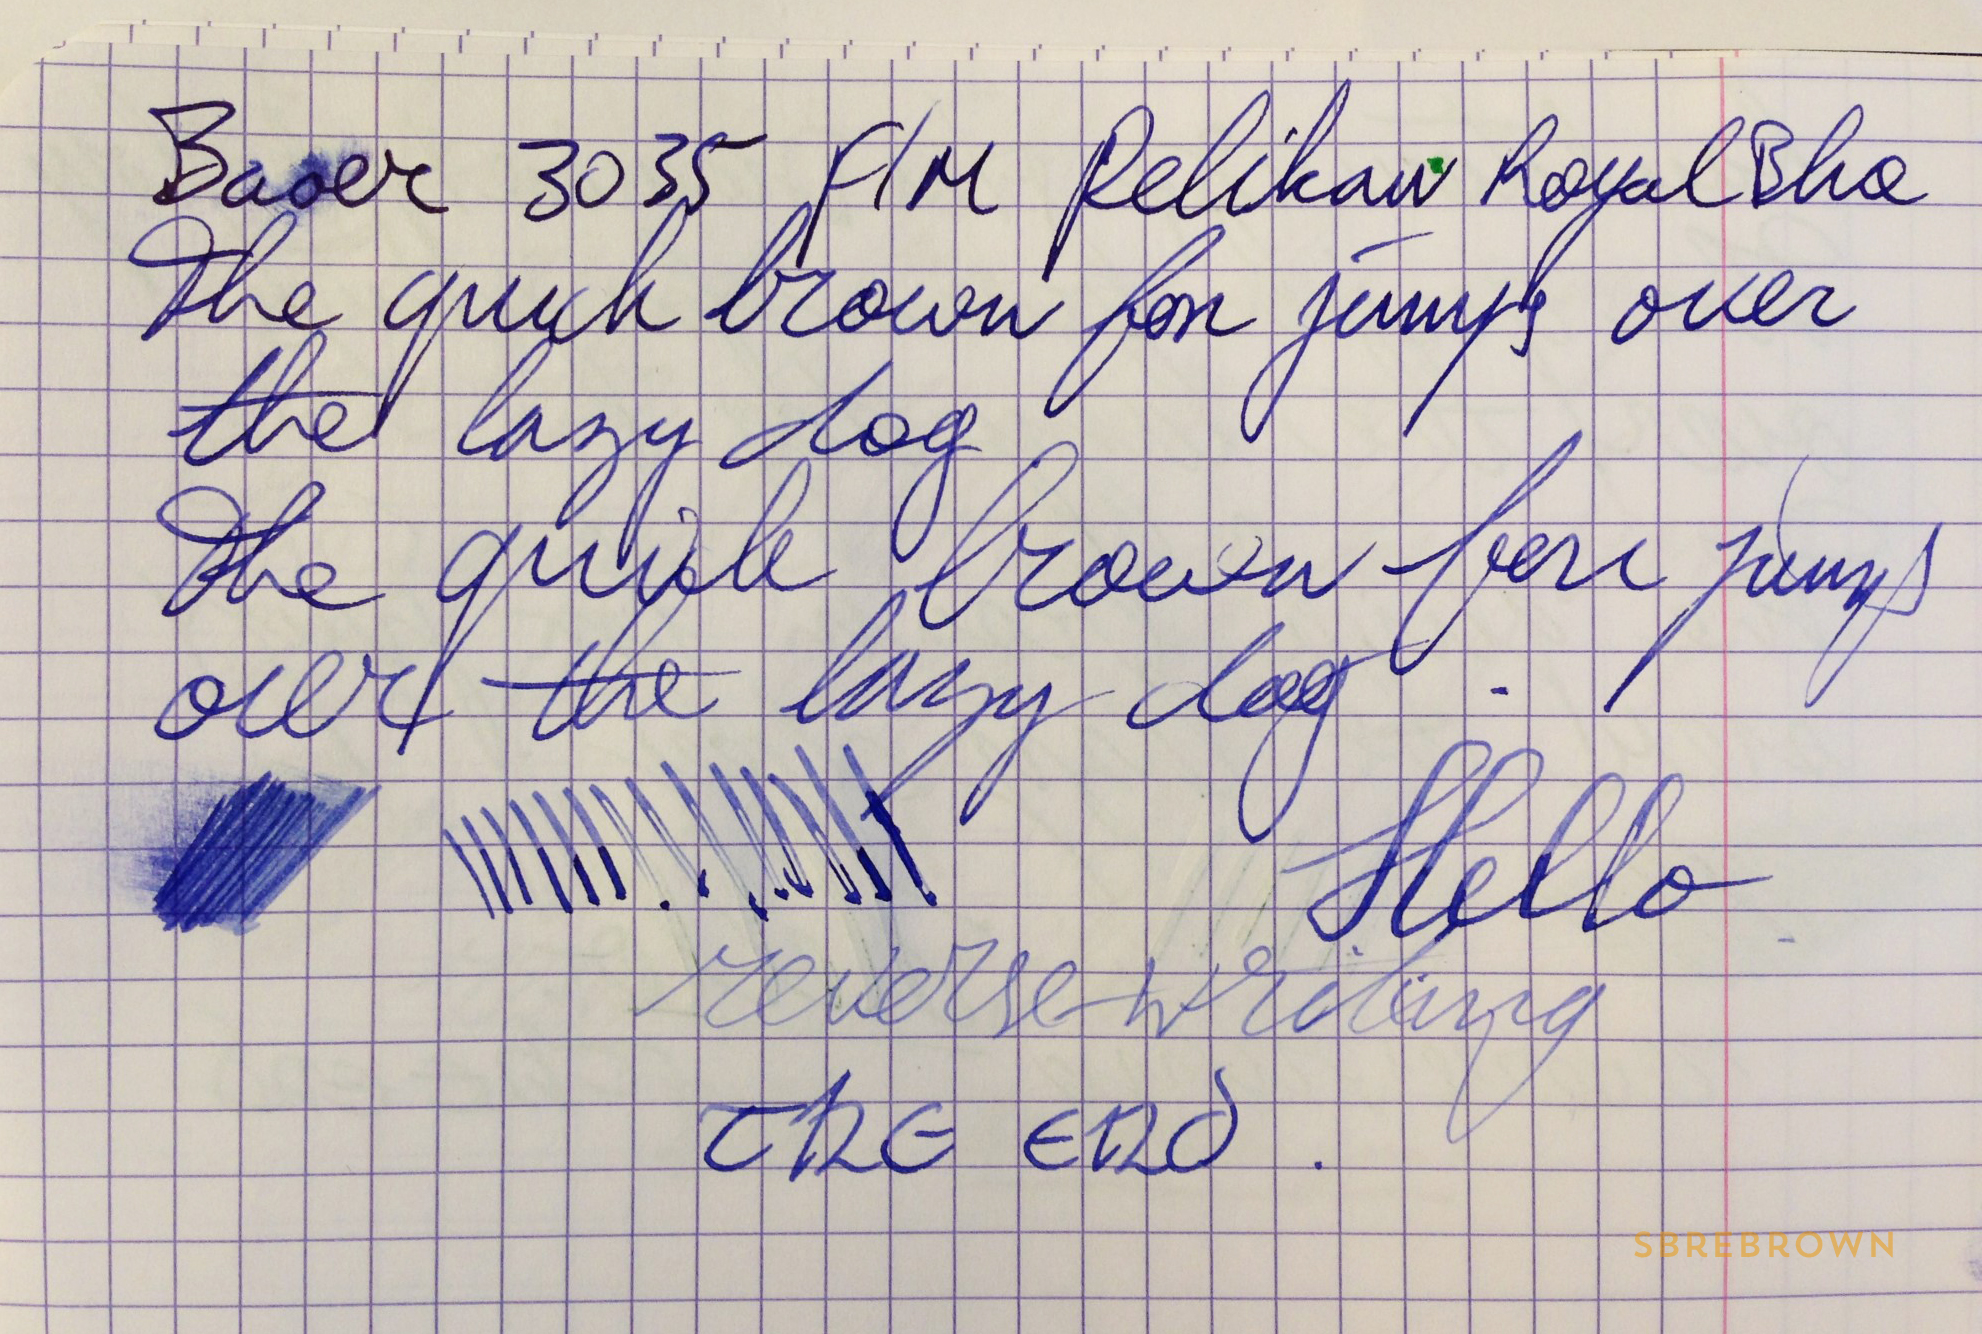 Baoer 3035 F/M Pelikan Royal Blue
The quick brown fox jumps over
the lazy dog
The quick brown fox jumps
over the lazy dog.
Hello
reverse writing
The end.
SBREBROWN